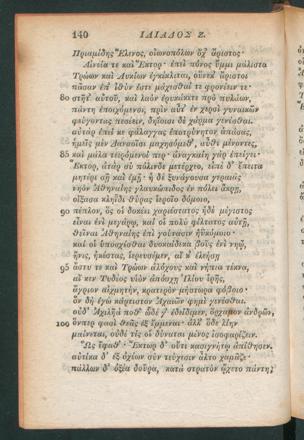 140 ΙΛΙΑΔΟΣ Ζ.
Πριαμίδης Ἕλενος, οἰωνοπόλων ὄχ' ἄριστος·
Αἰνεία τε καὶ Ἕκτορ· ἐπεὶ πόνος ὔμμι μάλιστα
Τρώων καὶ Λυκίων ἐγκέκλιται, οὕνεκ' ἄριστοι
πᾶσαν ἐπ' ἰθύν ἐστε μάχεσθαί τε φρονέειν τε·
80 στῆτ' αὐτοῦ, καὶ λαὸν ἐρυκάκετε πρὸ πυλάων,
πάντη ἐποιχόμενοι, πρὶν αὖτ' ἐν χερσὶ γυναικῶν
φεύγοντας πεσέειν, δηίοισι δὲ χάρμα γενέσθαι.
αὐτὰρ ἐπεί κε φάλαγγας ἐποτρύνητον ἁπάσας,
ἡμεῖς μὲν Δαναοῖσι μαχησόμεθ', αὖθι μένοντες,
85 καὶ μάλα τειρόμενοί περ· ἀναγκαίη γὰρ ἐπείγει·
Ἕκτορ, ἀτὰρ σὺ πόλινδε μετέρχεο, εἰπὲ δ' ἔπειτα
μητέρι σῇ καὶ ἐμῇ· ἡ δὲ ξυνάγουσα γεραιὰς
νηὸν Ἀθηναίης γλαυκώπιδος ἐν πόλει ἄκρῃ,
οἴξασα κληῖδι θύρας ἱεροῖο δόμοιο,
90 πέπλον, ὅς οἱ δοκέει χαριέστατος ἠδὲ μέγιστος
εἶναι ἐνὶ μεγάρῳ, καί οἱ πολὺ φίλτατος αὐτῇ,
θεῖναι Ἀθηναίης ἐπὶ γούνασιν ἠυκόμοιο·
καί οἱ ὑποσχέσθαι δυοκαίδεκα βοῦς ἐνὶ νηῷ,
ἤνις, ἠκέστας, ἱερευσέμεν, αἴ κ' ἐλεήσῃ
95 ἄστυ τε καὶ Τρώων ἀλόχους καὶ νήπια τέκνα,
αἴ κεν Τυδέος υἱὸν ἀπόσχῃ Ἰλίου ἱρῆς,
ἄγριον αἰχμητήν, κρατερὸν μήστωρα φόβοιο·
ὃν δὴ ἐγὼ κάρτιστον Ἀχαιῶν φημὶ γενέσθαι.
οὐδ' Ἀχιλῆά ποθ' ὧδέ γ' ἐδείδιμεν, ὄρχαμον ἀνδρῶν,
100 ὅνπερ φασὶ θεᾶς ἐξ ἔμμεναι· ἀλλ' ὅδε λίην
μαίνεται, οὐδέ τίς οἱ δύναται μένος ἰσοφαρίζειν.
Ὣς ἔφαθ'· Ἕκτωρ δ' οὔτι κασιγνήτῳ ἀπίθησεν.
αὐτίκα δ' ἐξ ὀχέων σὺν τεύχεσιν ἆλτο χαμᾶζε·
πάλλων δ' ὀξέα δοῦρα, κατὰ στρατὸν ᾤχετο πάντη,